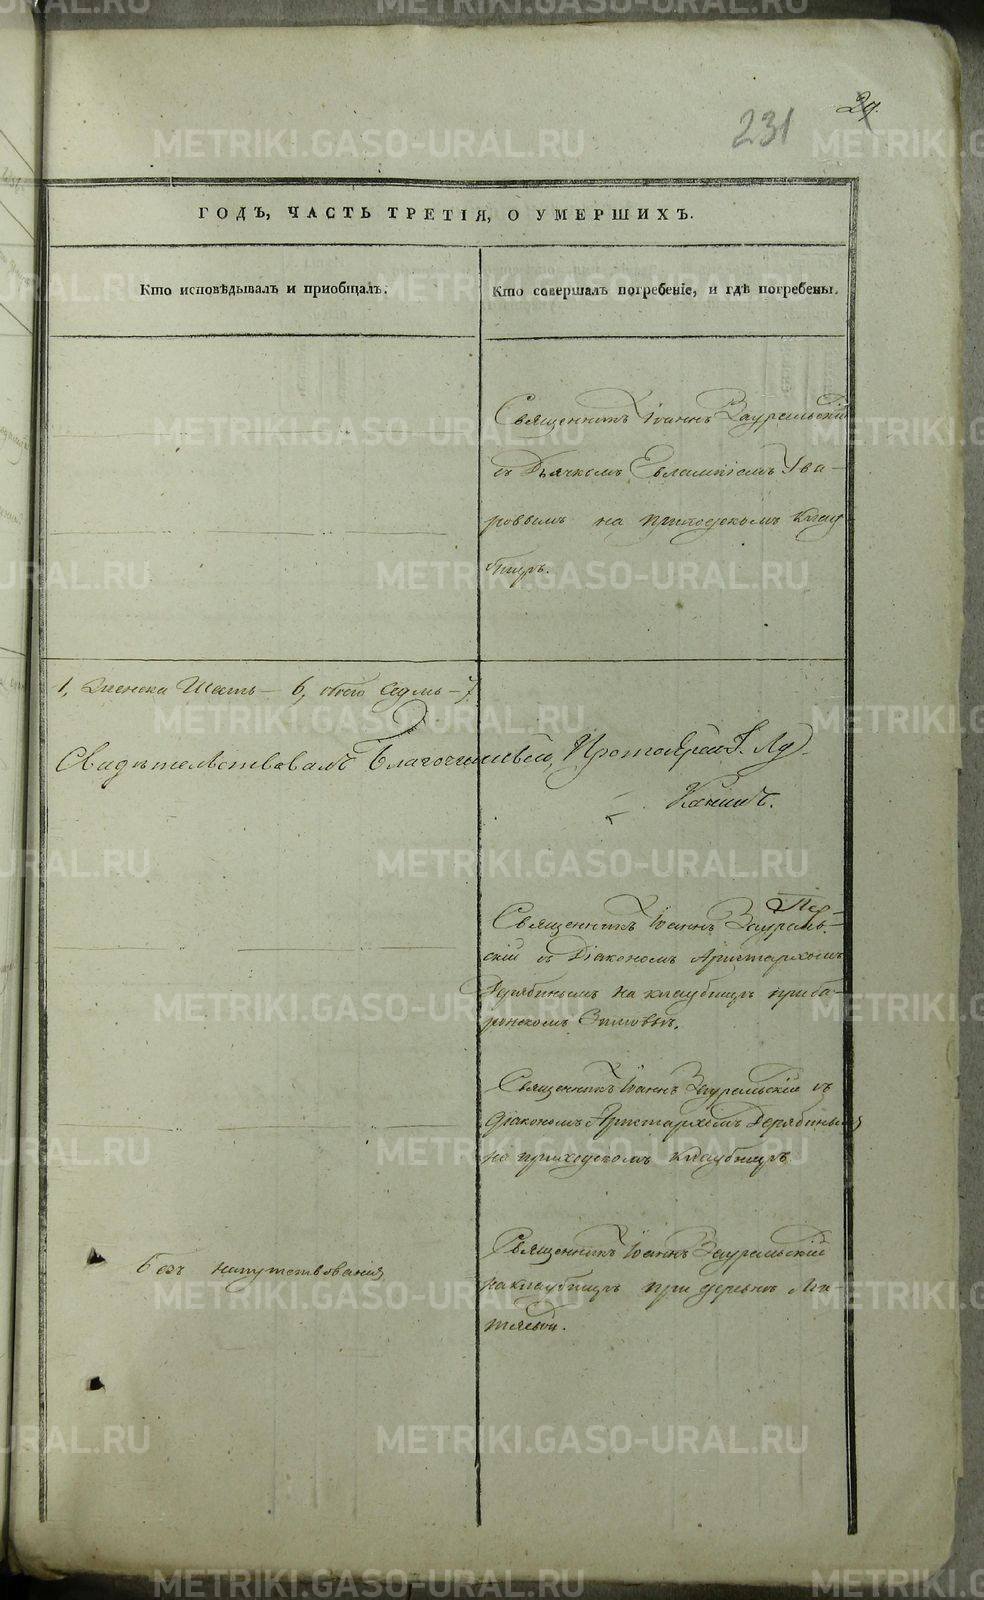 231
29.
ГОДЪ, ЧАСТЬ ТРЕТІЯ, О УМЕРШИХЪ.
Кто исповѣдывалъ и пріобщалъ.
Кто совершалъ погребеніе, и гдѣ погребены.
Священникъ Іоаннъ Зауральскій
съ Дьячкомъ Евлампіемъ Ува-
ровымъ на приходскомъ клад
бищѣ.
1, женска Шесть – 6, обоего Седмь – 7.
Свидѣтельствовалъ Благочинный, Протоіерей
Священникъ Іоаннъ Заураль-
скій съ Діакономъ Аристархомъ
Дерябинымъ на кладбищѣ при
Зимовьѣ.
Священникъ Іоаннъ Зауральскій съ
Діакономъ Аристархомъ Дерябинымъ
на приходскомъ кладбищѣ.
Безъ напутствованія
Священникъ Іоаннъ Зауральскій
на кладбищѣ при деревнѣ
METRIKI.GASO-URAL.RU